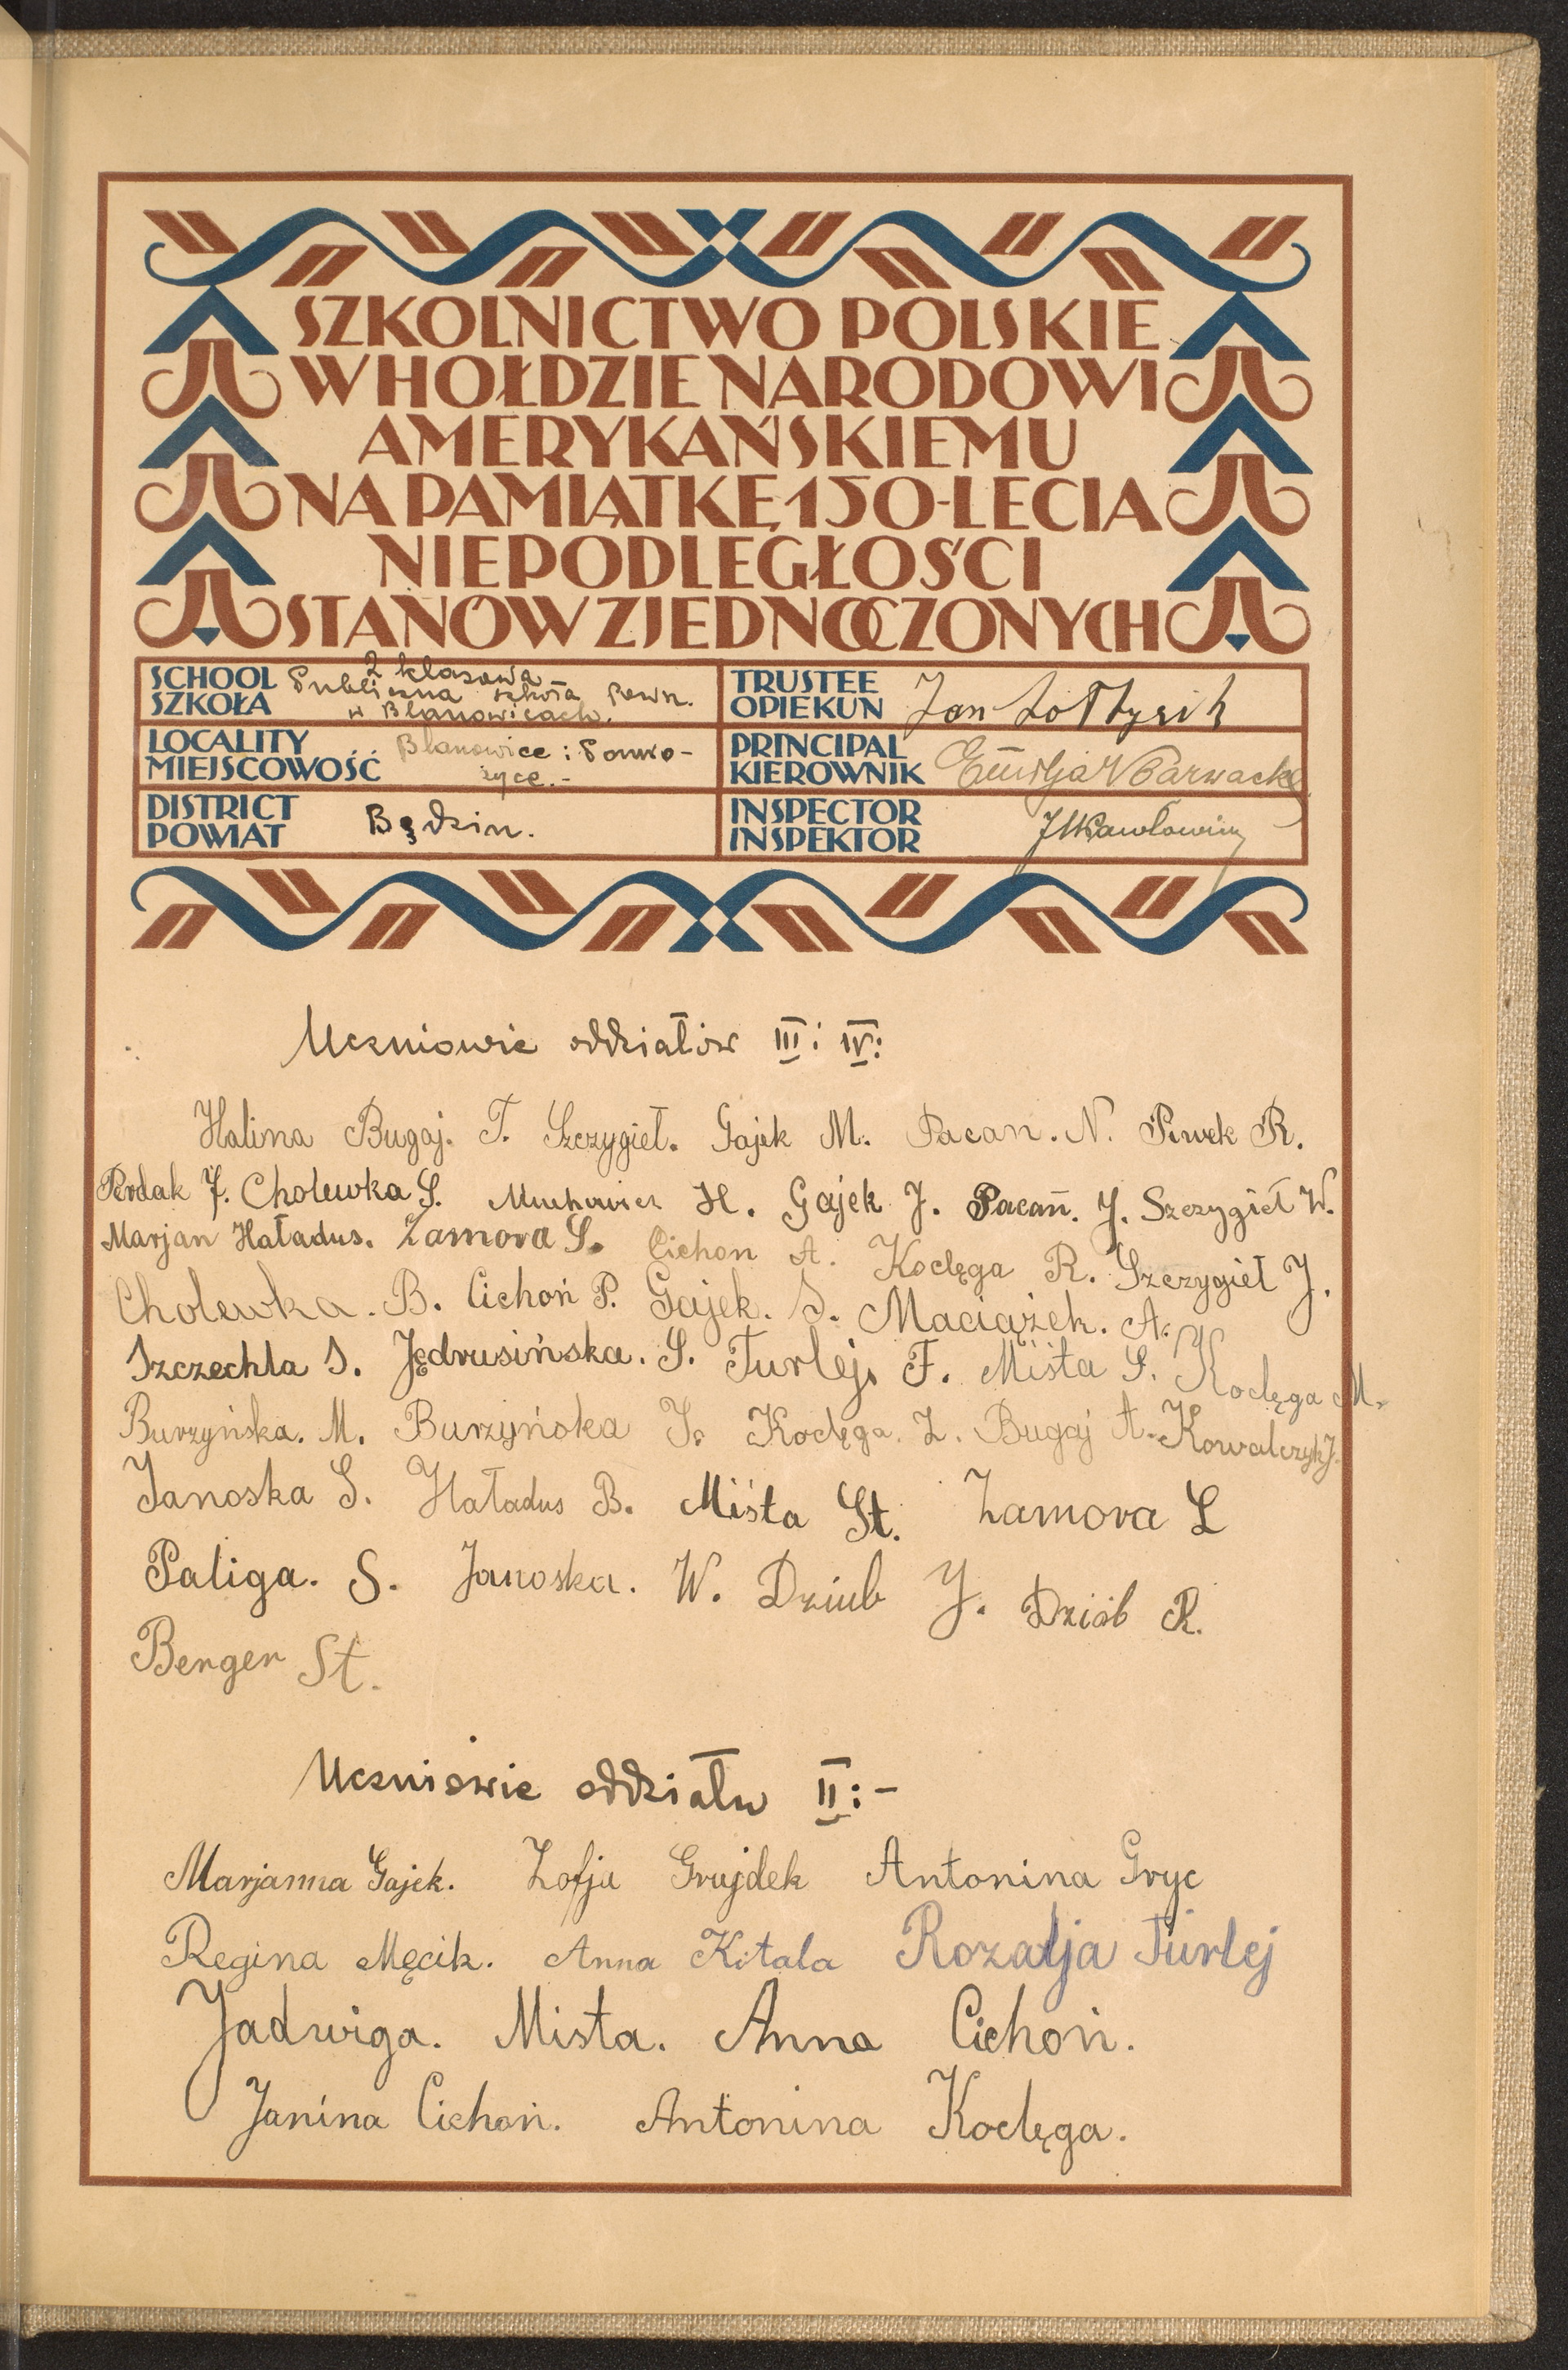 SZKOLNICTWO POLSKIE
W HOŁDZIE NARODOWI
AMERYKAŃSKIEMU
NA PAMIĄTKĘ 150-LECIA
NIEPODLEGŁOŚCI
STANÓW ZJEDNOCZONYCH
SCHOOL
SZKOŁA
2 klasowa
Publiczna szkoła Pown.
w Blanowicach.
TRUSTEE
OPIEKUN
Jan
LOCALITY
MIEJSCOWOŚĆ
Blanowice i
życe.-
PRINCIPAL
KIEROWNIK
Emilja
DISTRICT
POWIAT
Będzin.
INSPECTOR
INSPEKTOR
Pawłowicz
Uczniowie oddziałów III i IV:
Halina Bugaj. T. Szczygieł. Gajek M. Pacan. N. Piwek R.
Perdak J. Cholewka S. Muchowicz H. Gajek J. Pacań. J. Szczygieł W.
Marjan Haładus. Zamora S. Cichon A. Koclęga R. Szczygieł J.
Cholewka. B. Cichoń P. Gajek. S. Maciążek. A.
Szczechla S. Jędrusińska. S. Turlej. F. Miśta S. Koclęga M.
Burzyńska. M. Burzyńska J. Koclęga. Z. Bugaj A. Kowalczyk J.
Janoska S. Haładus B. Miśta St. Zamora L
Paliga. S. Janoska. W. Dziub J. Dziób R.
Berger St.
Uczniowie oddziału II:-
Marjanna Gajek. Zofja Grujdek Antonina Gryc
Regina Męcik. Anna Kitala Rozalja Turlej
Jadwiga. Mista. Anna Cichoń.
Janina Cichoń. Antonina Koclęga.